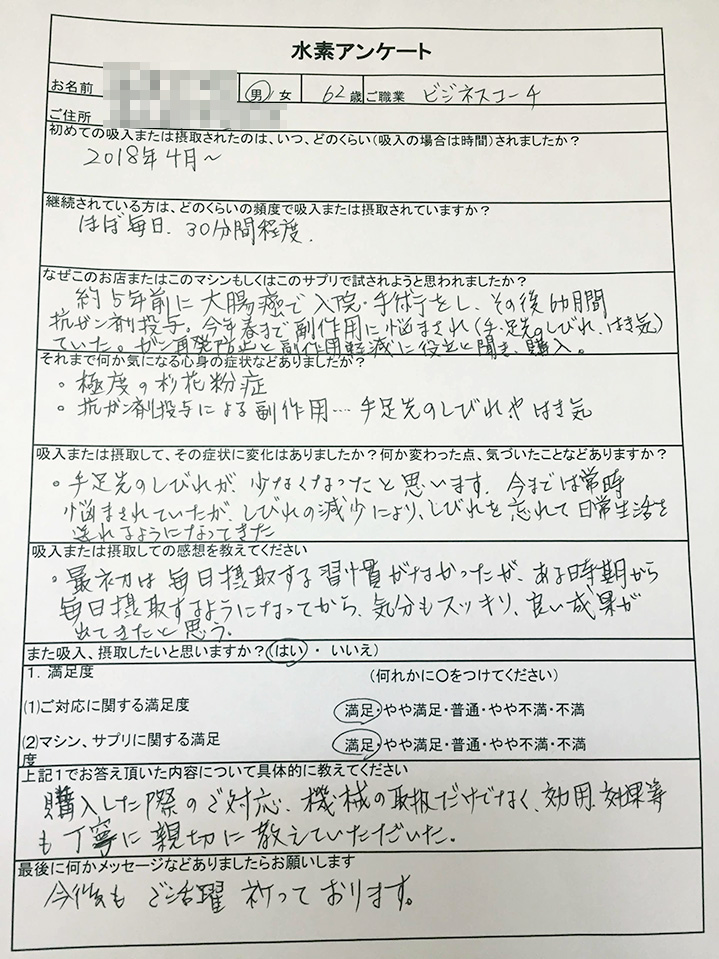 水素アンケート
お名前 男/女 62歳 ご職業 ビジネスコーチ
ご住所
初めての吸入または摂取されたのは、いつ、どのくらい(吸入の場合は時間)されましたか?
2018年4月~
継続されている方は、どのくらいの頻度で吸入または摂取されていますか?
ほぼ毎日、30分間程度.
なぜこのお店またはこのマシンもしくはこのサプリで試されようと思われましたか?
約5年前に大腸癌で入院・手術をし、その後6カ月間
抗ガン剤投与。今年春まで副作用に悩まされ(手・足先のしびれ、はき気)
ていた。ガン再発防止と副作用軽減に役立と聞き、購入。
それまで何か気になる心身の症状などありましたか?
。極度の杉花粉症
。抗ガン剤投与による副作用…手足先のしびれやはき気
吸入または摂取して、その症状に変化はありましたか?何か変わった点、気づいたことなどありますか?
。手足先のしびれが、少なくなったと思います。今までは常時
悩まされていたが、しびれの減少により、しびれを忘れて日常生活を
送れるようになってきた
吸入または摂取しての感想を教えてください
。最初は毎日摂取する習慣がなかったが、ある時期から
毎日摂取するようになってから、気分もスッキリ、良い成果が
出てきたと思う。
また吸入、摂取したいと思いますか?(はい・いいえ)
1.満足度 (何れかに○をつけてください)
(1)ご対応に関する満足度 満足・やや満足・普通・やや不満・不満
(2)マシン、サプリに関する満足 満足・やや満足・普通・やや不満・不満
度
上記1でお答え頂いた内容について具体的に教えてください
購入した際のご対応、機械の取扱だけでなく、効用、効果等
も丁寧に親切に教えていただいた。
最後に何かメッセージなどありましたらお願いします
今後もご活躍祈っております。